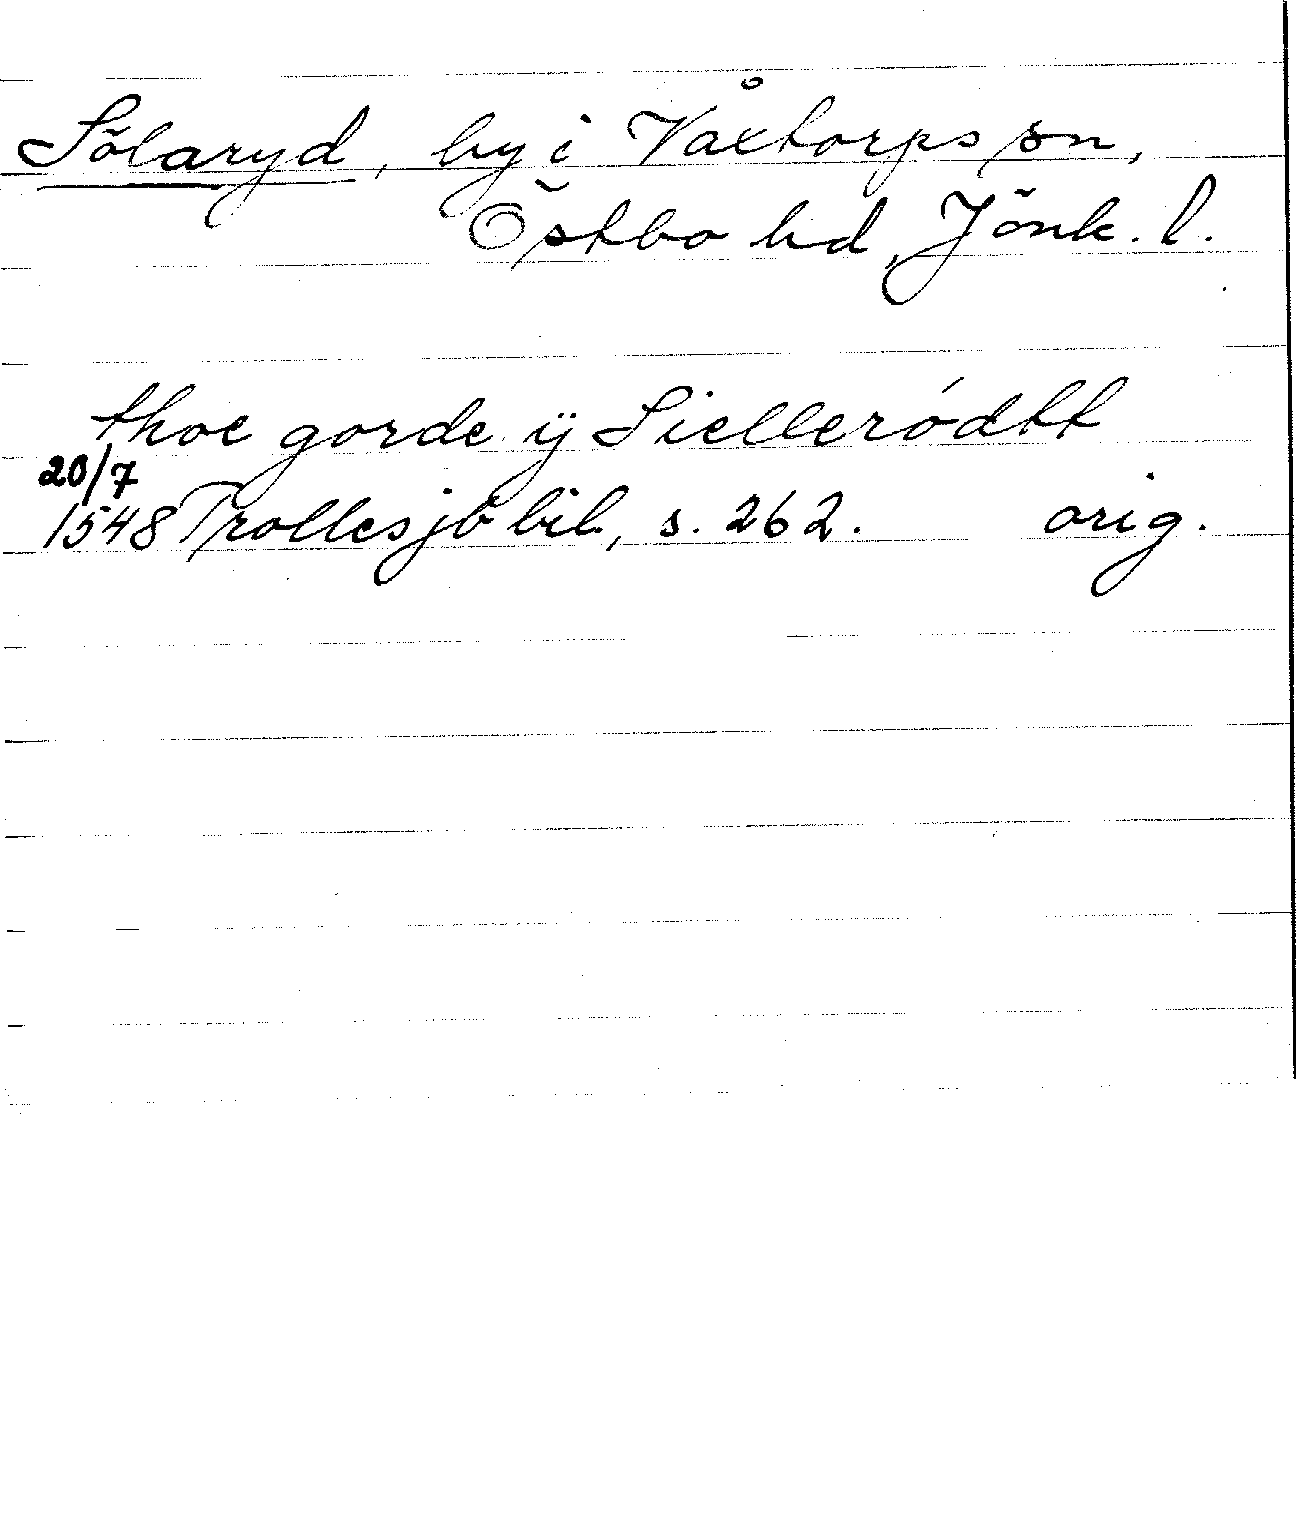 Sölaryd, by i Våxtorps sn,
Östbo hd, Jönk. l.
thoe gorde ÿ Sielleródtt
20/7
1548 Trollesjö bil, s. 262. orig.